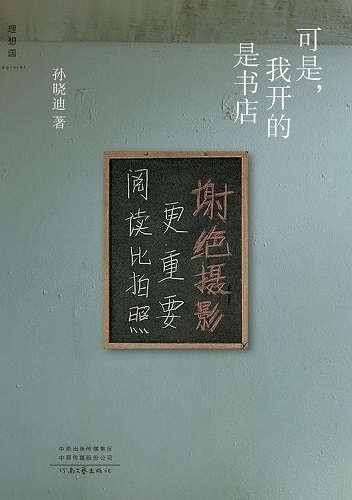 理想国
可是，
我开的
是书店
孙晓迪 著
谢绝摄影
更重要
阅读比拍照
中原出版传媒集团
中原传媒股份公司
河南文艺出版社